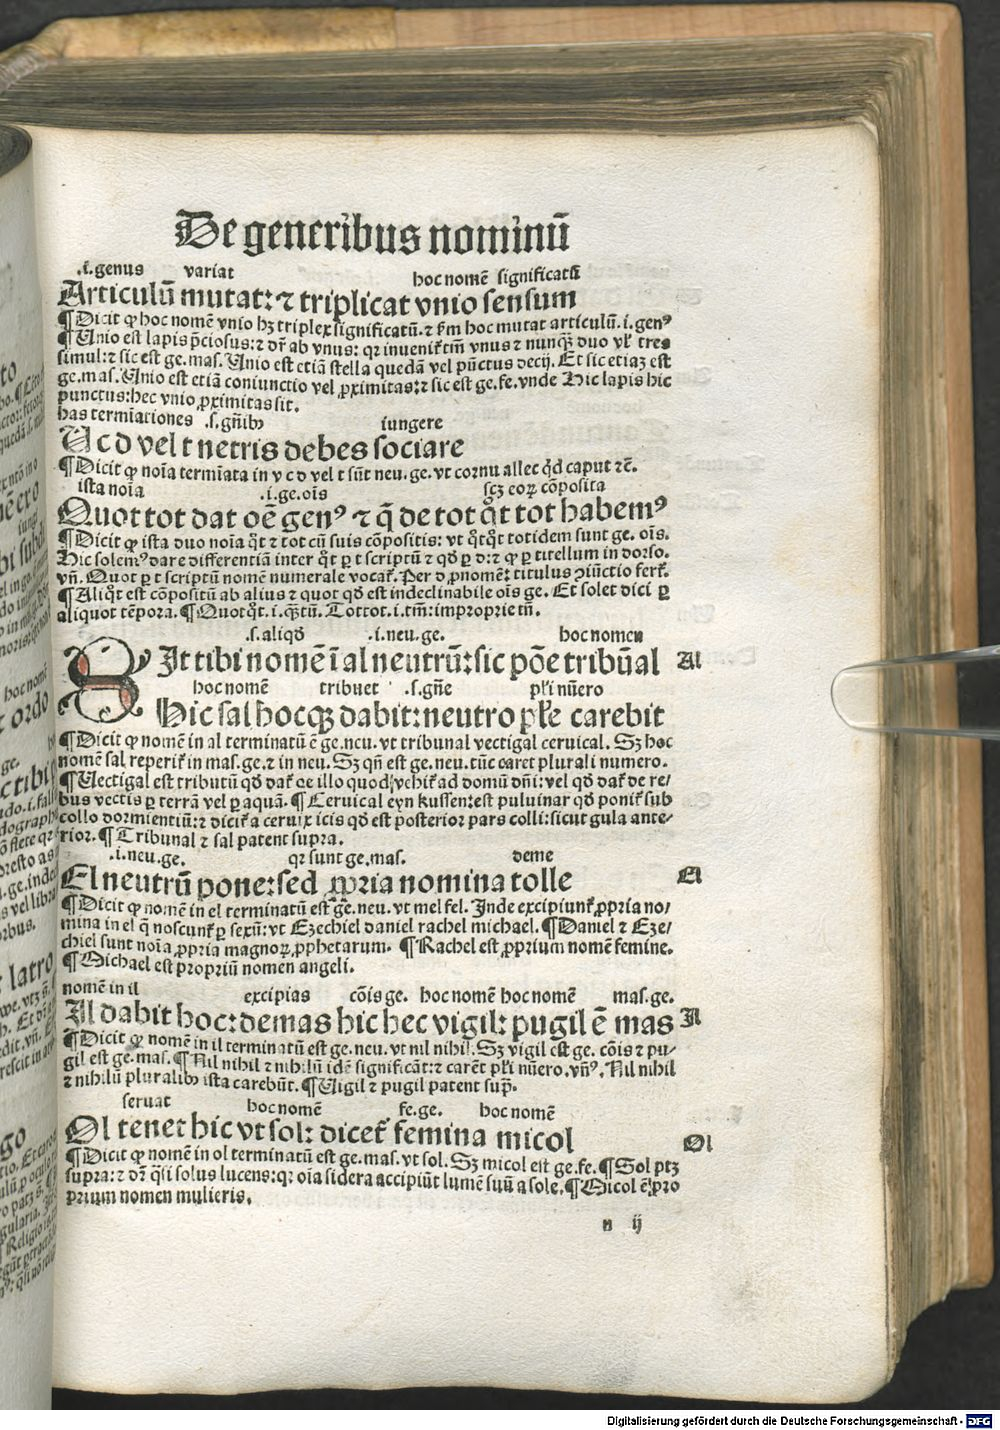 De generibus nominū
.i. genus variat hoc nomē significatū
Articulū mutat: ⁊ triplicat vnio sensum
¶Dicit ꝙ hoc nomē vnio hꝫ triplex significatū. ⁊ ẜm hoc mutat articulū. i. genꝰ
¶Unio est lapis p̄ciosus: ⁊ dr̄ ab vnus: qꝛ inuenit̄ tm̄ vnus ⁊ nunqꝫ duo vl̓ tres
simul: ⁊ sic est ge. mas. Unio est etiā stella quedā vel pūctus decij. Et sic etiaꝫ est
ge. mas. Unio est etiā coniunctio vel ꝓximitas: ⁊ sic est ge. fe. vnde Hic lapis hic
punctus: hec vnio ꝓximitas sit.
has termīationes .s. gn̄ibꝰ iungere
U c d vel t netris debes sociare
¶Dicit ꝙ noīa termīata in v c d vel t sūt neu. ge. vt cornu allec qd̓ caput ⁊c̄.
ista noīa .i. ge. oīs scꝫ eoꝝ cōposita
Quot tot dat oē genꝰ ⁊ q̄ de tot q̊t tot habemꝰ
¶Dicit ꝙ ista duo noīa q̊t ⁊ tot cū suis cōpositis: vt q̊tq̊t totidem sunt ge. oīs.
Hic solemꝰ dare differentiā inter q̊t ꝑ t scriptū ⁊ qd̓ ꝑ d: ⁊ ꝙ ꝑ titellum in dorso.
vn̄. Quot ꝑ t scriptū nomē numerale vocat̄. Per d ꝓnomē: titulus ꝯiūctio fert̄.
¶Aliq̊t est cōpositū ab alius ⁊ quot qd̓ est indeclinabile oīs ge. Et solet dici ꝑ
aliquot tēpora. ¶Quotq̊t. i. q̄ꝫtū. Tottot. i. tm̄: improprie tn̄.
.s. aliqd̓ .i. neu. ge. hoc nomen
Sit tibi nomē ī al neutrū: sic pōe tribūal Al
hoc nomē tribuet .s. gn̄e pl̓i nūero
Hic sal hocqꝫ dabit: neutro pl̓e carebit
¶Dicit ꝙ nomē in al terminatū ē ge. neu. vt tribunal vectigal ceruical. Sꝫ hoc
nomē sal reperit̄ in mas. ge. ⁊ in neu. Sꝫ qn̄ est ge. neu. tūc caret plurali numero.
¶Uectigal est tributū qd̓ dat̄ de illo quod vehit̄ ad domū dn̄i: vel qd̓ dat̄ de re/
bus vectis ꝑ terrā vel ꝑ aquā. ¶Ceruical eyn kussen: est puluinar qd̓ ponit̄ sub
collo dormientiū: ⁊ dicit̄ a ceruix icis qd̓ est posterior pars colli: sicut gula ante/
rior. ¶Tribunal ⁊ sal patent supra.
.i. neu. ge. qꝛ sunt ge. mas. deme
El neutrū pone: sed ꝓpria nomina tolle El
¶Dicit ꝙ nomē in el terminatū est ge. neu. vt mel fel. Inde excipiunt̄ ꝓpria no/
mina in el q̄ noscunt̄ ꝑ sexū: vt Ezechiel daniel rachel michael. ¶Daniel ⁊ Eze/
chiel sunt noīa ꝓpria magnoꝝ ꝓphetarum. ¶Rachel est ꝓprium nomē femine.
¶Michael est propriū nomen angeli.
nomē in il excipias cōis ge. hoc nomē hoc nomē mas. ge.
Il dabit hoc: demas hic hec vigil: pugil ē mas Il
¶Dicit ꝙ nomē in il terminatū est ge. neu. vt nil nihil. Sꝫ vigil est ge. cōis ⁊ pu/
gil est ge. mas. ¶Nil nihil ⁊ nihilū idē significāt: ⁊ carēt pl̓i nūero. vn̄ꝰ. Nil nihil
⁊ nihilū pluralibꝰ ista carebūt. ¶Uigil ⁊ pugil patent sup̄.
seruat hoc nomē fe. ge. hoc nomē
Ol tenet hic vt sol: dicet̄ femina micol Ol
¶Dicit ꝙ nomē in ol terminatū est ge. mas. vt sol. Sꝫ micol est ge. fe. ¶Sol ptꝫ
supra: ⁊ dr̄ q̄si solus lucens: qꝛ oīa sidera accipiūt lumē suū a sole. ¶Micol ē pro
prium nomen mulieris.
n ij
Digitalisierung gefördert durch die Deutsche Forschungsgemeinschaft - DFG